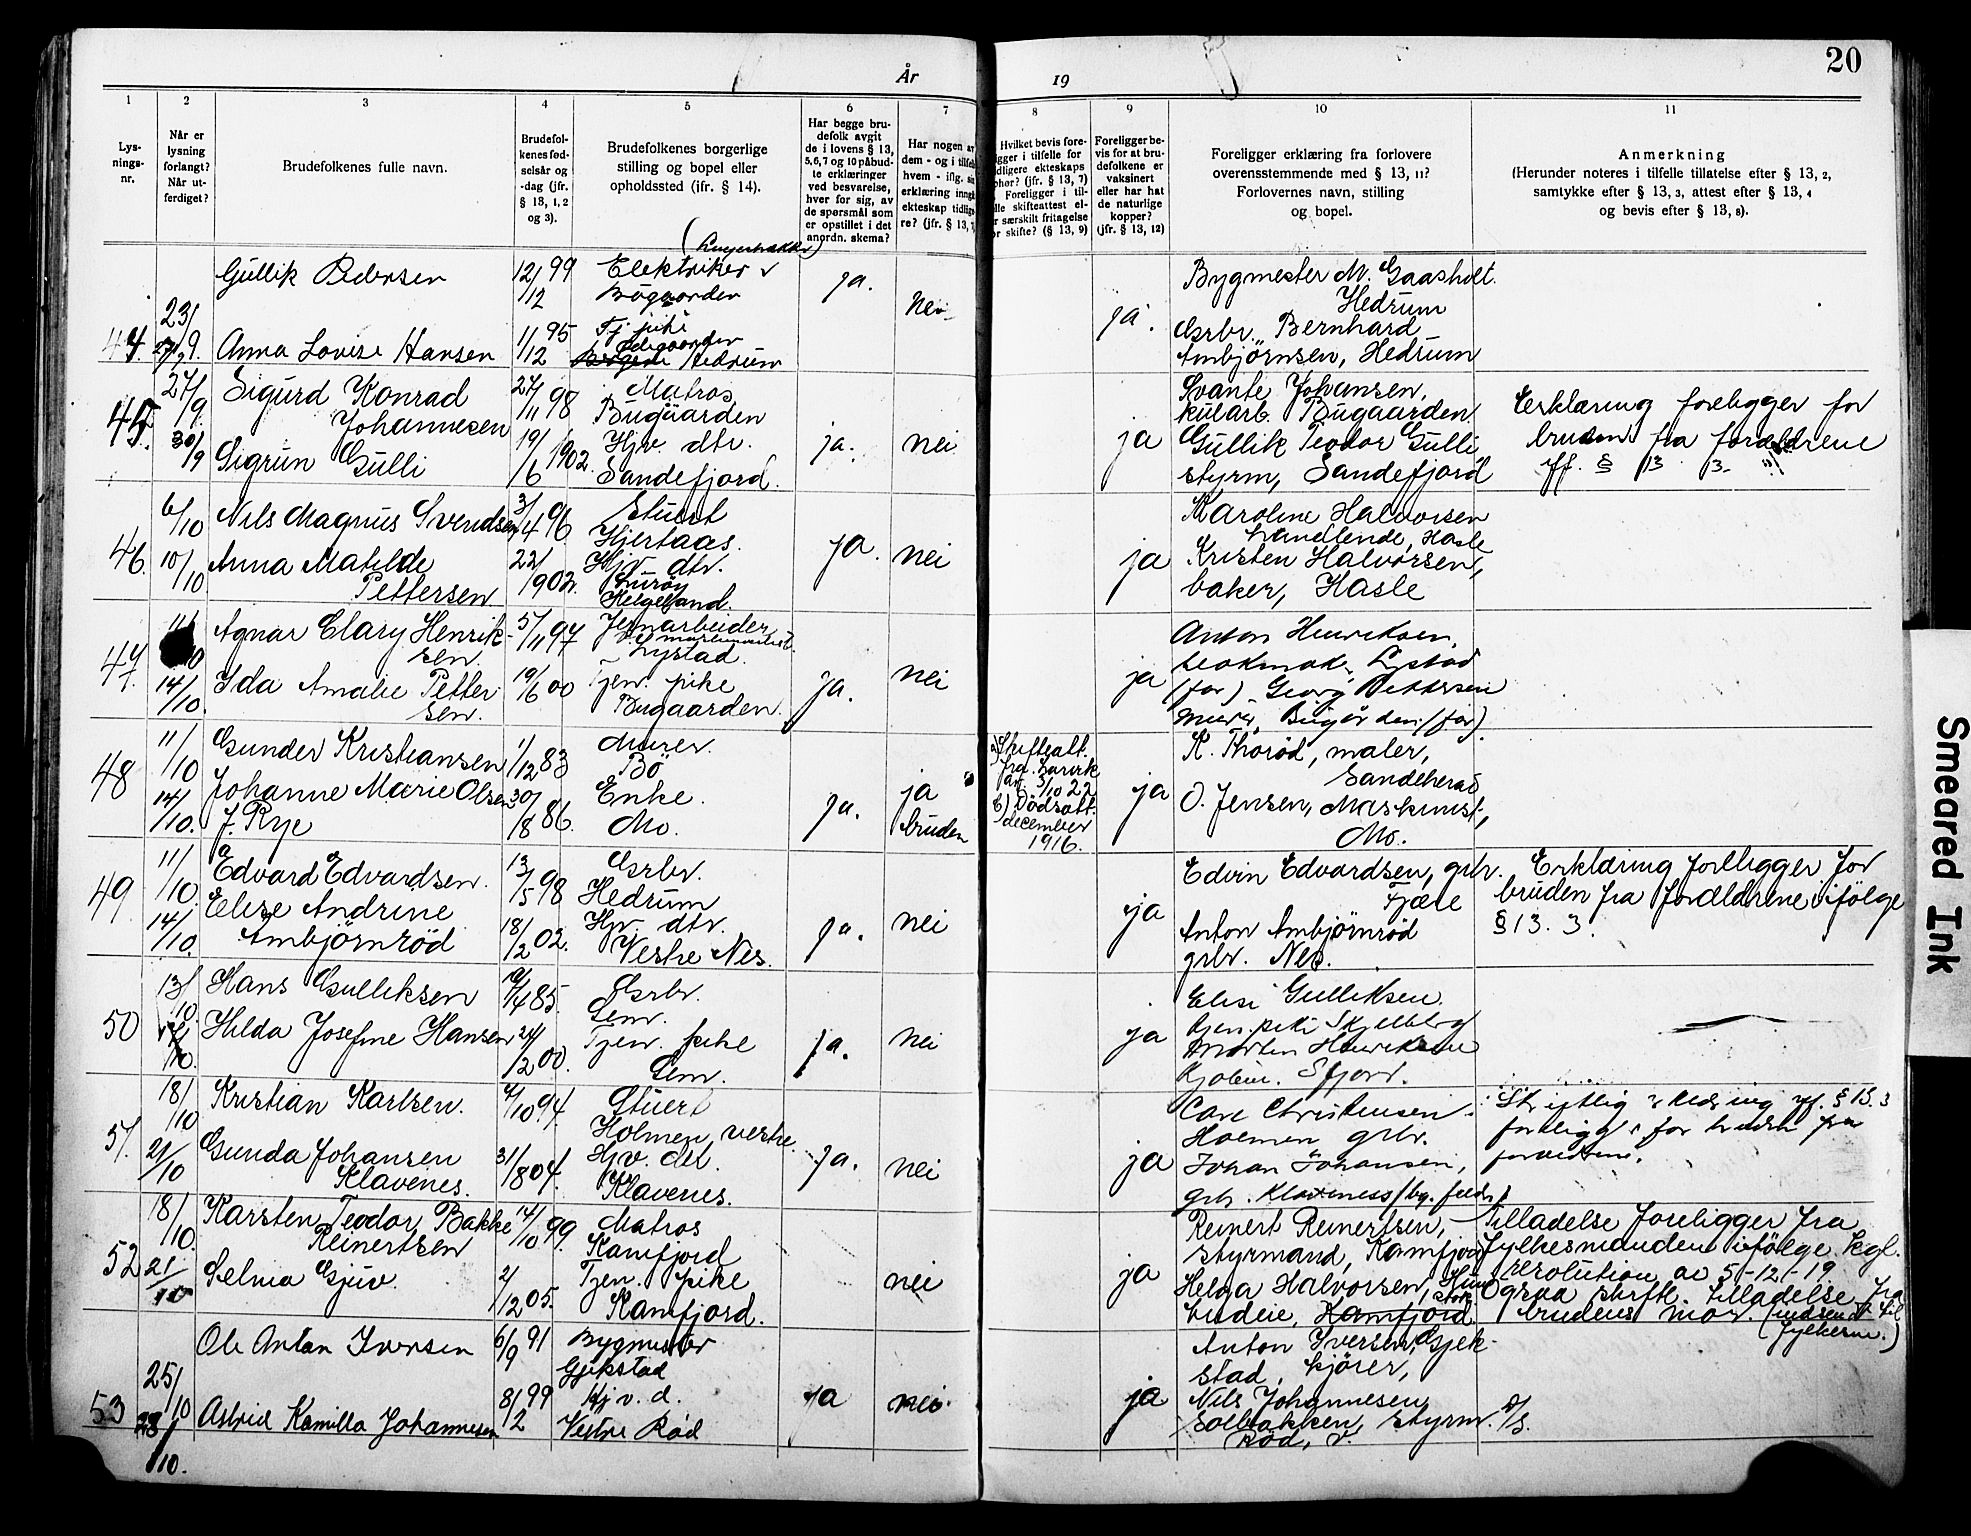 20
År
19
1
2
3
4
5
6
7
8
9
10
11
Lys-
nings-
nr.
Når er
lysning
forlangt?
Når ut-
ferdiget?
Brudefolkenes fulle navn.
Brudefol-
kenes fød-
selsår og
-dag (jfr.
§ 13, 1, 2
og 3).
Brudefolkenes borgerlige
stilling og bopel eller
opholdssted (ifr. § 14).
Har begge bru-
defolk avgit
de i lovens § 13,
5,6,7 og 10 påbud-
te erklæringer
ved besvarelse,
hver for sig, av
de spørsmål som
er opstillet i det
anordn. skema?
Har nogen av
dem - og i tilfelle
hvem - iflg. sin
erklæring inngått
ekteskap tidlige-
re? (jfr. § 13,
Hvilket bevis fore-
ligger i tilfelle for
tidligere ekteskaps
ophør? (jfr. § 13, 7)
Foreligger i til-
felle skifteattest el-
ler særskilt fritagelse
for skifte? (§ 13, 9)
Foreligger be-
vis for at bru-
defolkene er
vaksinert
eller har hat
de naturlige
kopper?
(jfr. § 13, 12)
Foreligger erklæring fra forlovere
overensstemmende med § 13, 11?
Forlovernes navn, stilling
og bopel.
Anmerkning
(Herunder noteres i tilfelle tillatelse efter § 13, 2,
samtykke efter § 13, 3, attest efter § 13, 4
og bevis efter § 13, 8).
44.
23/
27/9 9.
Gullik Pedersen
Anna Lovise Hansen
12/12 99
1/12 95
Elektriker
Bögaarden
Tj. pike
Hedrum
ja.
nei
ja.
Bygmester M. Gaasholt
Hedrum
Gsrbr. Bernhard
Ambjørnsen, Hedrum
45.
27/9.
30/9
Sigurd Konrad
Johannesen
Sigrun Gulli
27/11 98
19/6 1902.
Matros
Bugaarden
Hjv. dtr.
Sandefjord.
ja.
nei
ja
Svante Johansen,
kularb. Bugaarden.
Gullik Teodor Gulli
styrm, Sandefjord
Erklæring foreligger for
bruden fra forældrene
jf. § 13. 3.
46.
6/10
10/10
Nils Magnus Svendsen
Anna Matilde
Pettersen
3/4 96
22/1902.
Stuert
Hjertaas.
Hjv. dtr.
Lurøy
Helgeland.
ja.
nei
ja
Karoline Halvorsen
handlende, Hasle
Kristen Halvorsen,
baker, Hasle
47.
10
14/10.
Agnar Clary Henrik-
sen.
Ida Amalie Petter
sen.
5/11 97
19/6 00
Jernarbeider
Lystad.
Tjen. pike
Bugaarden.
ja.
nei
ja
Anton Henriksen,
Lystad
(far) Georg Pettersen
murer, Bugården (far).
48
11/10
14/10.
Gunder Kristiansen
Johanne Marie Olsen
f. Rye
1/12 83
30/8 86.
Murer.
Bö
Enke.
Mo.
ja.
ja
bruden
a) Skifteatt.
fra Larvik
av 3/10 22
b) Dödsatt.
december
1916.
ja
K. Thoröd, maler,
Sandeherad
O. Jensen, Maskinist,
Mo.
49.
11/10.
14/10.
Edvard Edvardsen.
Elise Andrine
Ambjörnröd
13/5 98
18/2 02.
Gsrbr.
Hedrum
Hjv. dtr.
Vestre Nes.
ja.
nei
ja
Edvin Edvardsen, grbr.
Fjære
Anton Ambjörnröd
grbr. Nes.
Erklæring foreligger for
bruden fra forældrene ifölge
§ 13. 3.
50
13/10.
10.
Hans Gulliksen
Hilda Josefine Hansen
/4 85.
24/2 00.
Gsrbr.
Lem.
Tjen. pike
Lem.
ja.
nei
ja
Elise Gulliksen.
tjen. pike Skjelberg
Morten Henriksen
Sfjord.
51.
18/10
21/10
Kristian Karlsen.
Gunda Johansen
Klavenes.
4/10 94.
31/8 04.
Stuert
Holmen, vestre
Hjv. dtr.
Klavenes.
ja.
nei
ja
Carl Christensen
Holmen grbr.
Johan Johansen,
grbr. Klavness
Skriftlig erklæring jf. § 13. 3
foreligger for bruden fra
forældrene.
52
18/10.
21/10
Karsten Teodor Bakke
Reinertsen
Selma Gjuv.
14/10 99.
2/12 05.
Matros
Kamfjord
Tjen. pike
Kamfjord.
nei
ja
Reinert Reinertsen,
styrmand, Kamfjord
Helga Halvorsen,
budeie, Kamfjord
Tilladelse foreligger fra
fylkesmanden ifölge kgl.
resolution av 5-12-19.
Ogsaa skriftl. tilladelse fra
brudens mor. (indsendt til
fylkesm.)
53
25/10
28/10.
Ole Anton Iversen
Astrid Kamilla Johannesen
6/9 91
8/2 99
Bygmester
Gjekstad
Hjv. d.
Vestre Rød
ja
nei.
ja
Anton Iversen, Gjek-
stad, kjører,
Nils Johannesen
Solbakken, styrm.
Rød, v.
Smeared Ink